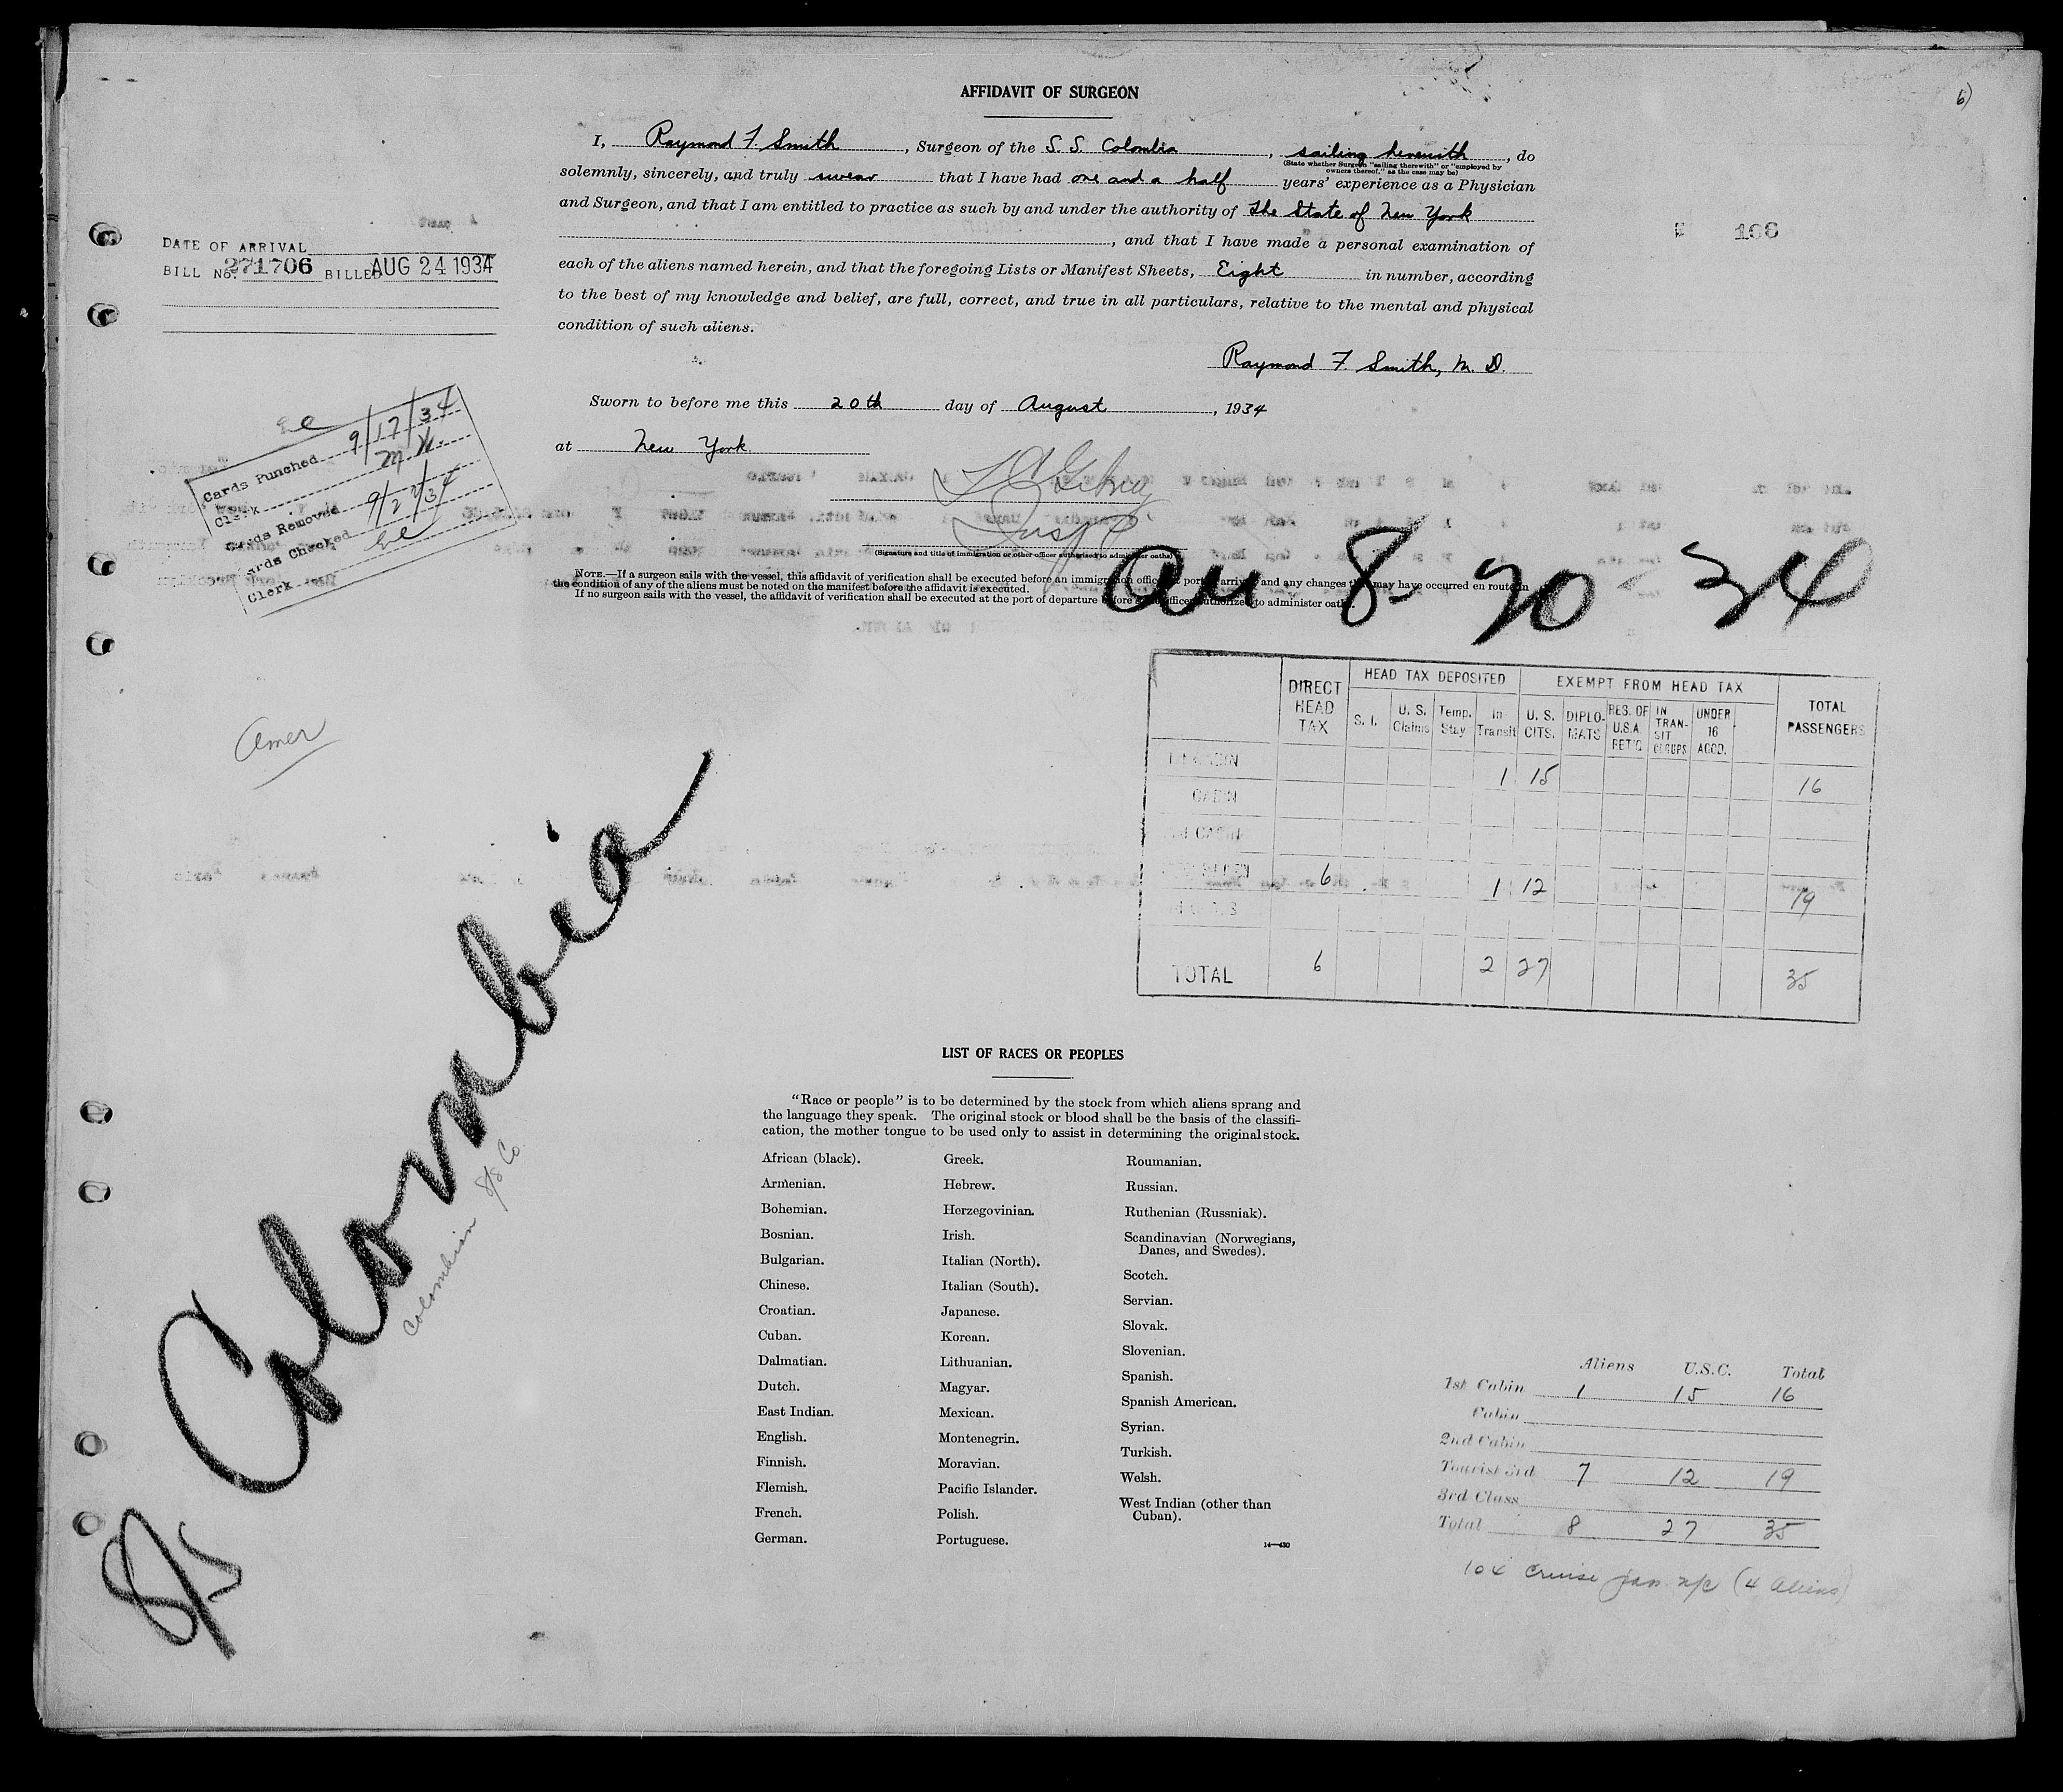 6)
AFFIDAVIT OF SURGEON
I, Raymond F. Smith, Surgeon of the S. S. Colombia, sailing herewith, do
(State whether Surgeon "sailing therewith" or "employed by
owners thereof," as the case may be)
solemnly, sincerely, and truly swear that I have had one and a half years' experience as a Physician
and Surgeon, and that I am entitled to practice as such by and under the authority of the State of New York
, and that I have made a personal examination of
each of the aliens named herein, and that the foregoing Lists or Manifest Sheets, Eight in number, according
to the best of my knowledge and belief, are full, correct, and true in all particulars, relative to the mental and physical
condition of such aliens.
Raymond F. Smith, M. D.
Sworn to before me this 20th day of August, 1934
at New York
Insp
(Signature and title of immigration or other officer authorized to administer oaths)
NOTE.—If a surgeon sails with the vessel, this affidavit of verification shall be executed before an immigration officer port arriv and any changes may have occurred en route in
the condition of any of the aliens must be noted on the manifest before the affidavit is executed.
If no surgeon sails with the vessel, the affidavit of verification shall be executed at the port of departure before officer authorized to administer oath.
8- 20 - 34
DATE OF ARRIVAL
BILL No. 271706 BILLED AUG 24 1934
166
Cards Punched 9/17/34
Clerk
Cards Removed
Cards Checked
Clerk
Amer
S/S Colombia
Colombian S/S Co
DIRECT HEAD TAX
HEAD TAX DEPOSITED
EXEMPT FROM HEAD TAX
TOTAL PASSENGERS
S. I. U. S. Claims Temp. Stay In Transit U. S. CITS. DIPLO-MATS RES. OF U.S.A. RET'G IN TRAN-SIT GROUPS UNDER 16 ACCD.
1 15 16
CABIN
6 1 12 19
TOTAL 6 2 27 35
LIST OF RACES OR PEOPLES
"Race or people" is to be determined by the stock from which aliens sprang and
the language they speak. The original stock or blood shall be the basis of the classifi-
cation, the mother tongue to be used only to assist in determining the original stock.
African (black).
Armenian.
Bohemian.
Bosnian.
Bulgarian.
Chinese.
Croatian.
Cuban.
Dalmatian.
Dutch.
East Indian.
English.
Finnish.
Flemish.
French.
German.
Greek.
Hebrew.
Herzegovinian.
Irish.
Italian (North).
Italian (South).
Japanese.
Korean.
Lithuanian.
Magyar.
Mexican.
Montenegrin.
Moravian.
Pacific Islander.
Polish.
Portuguese.
Roumanian.
Russian.
Ruthenian (Russniak).
Scandinavian (Norwegians,
Danes, and Swedes).
Scotch.
Servian.
Slovak.
Slovenian.
Spanish.
Spanish American.
Syrian.
Turkish.
Welsh.
West Indian (other than
Cuban).
14—430
Aliens U.S.C. Total
1st Cabin 1 15 16
Cabin
2nd Cabin
Tourist 3rd 7 12 19
3rd Class
Total 8 27 35
104 cruise pass (4 Aliens)